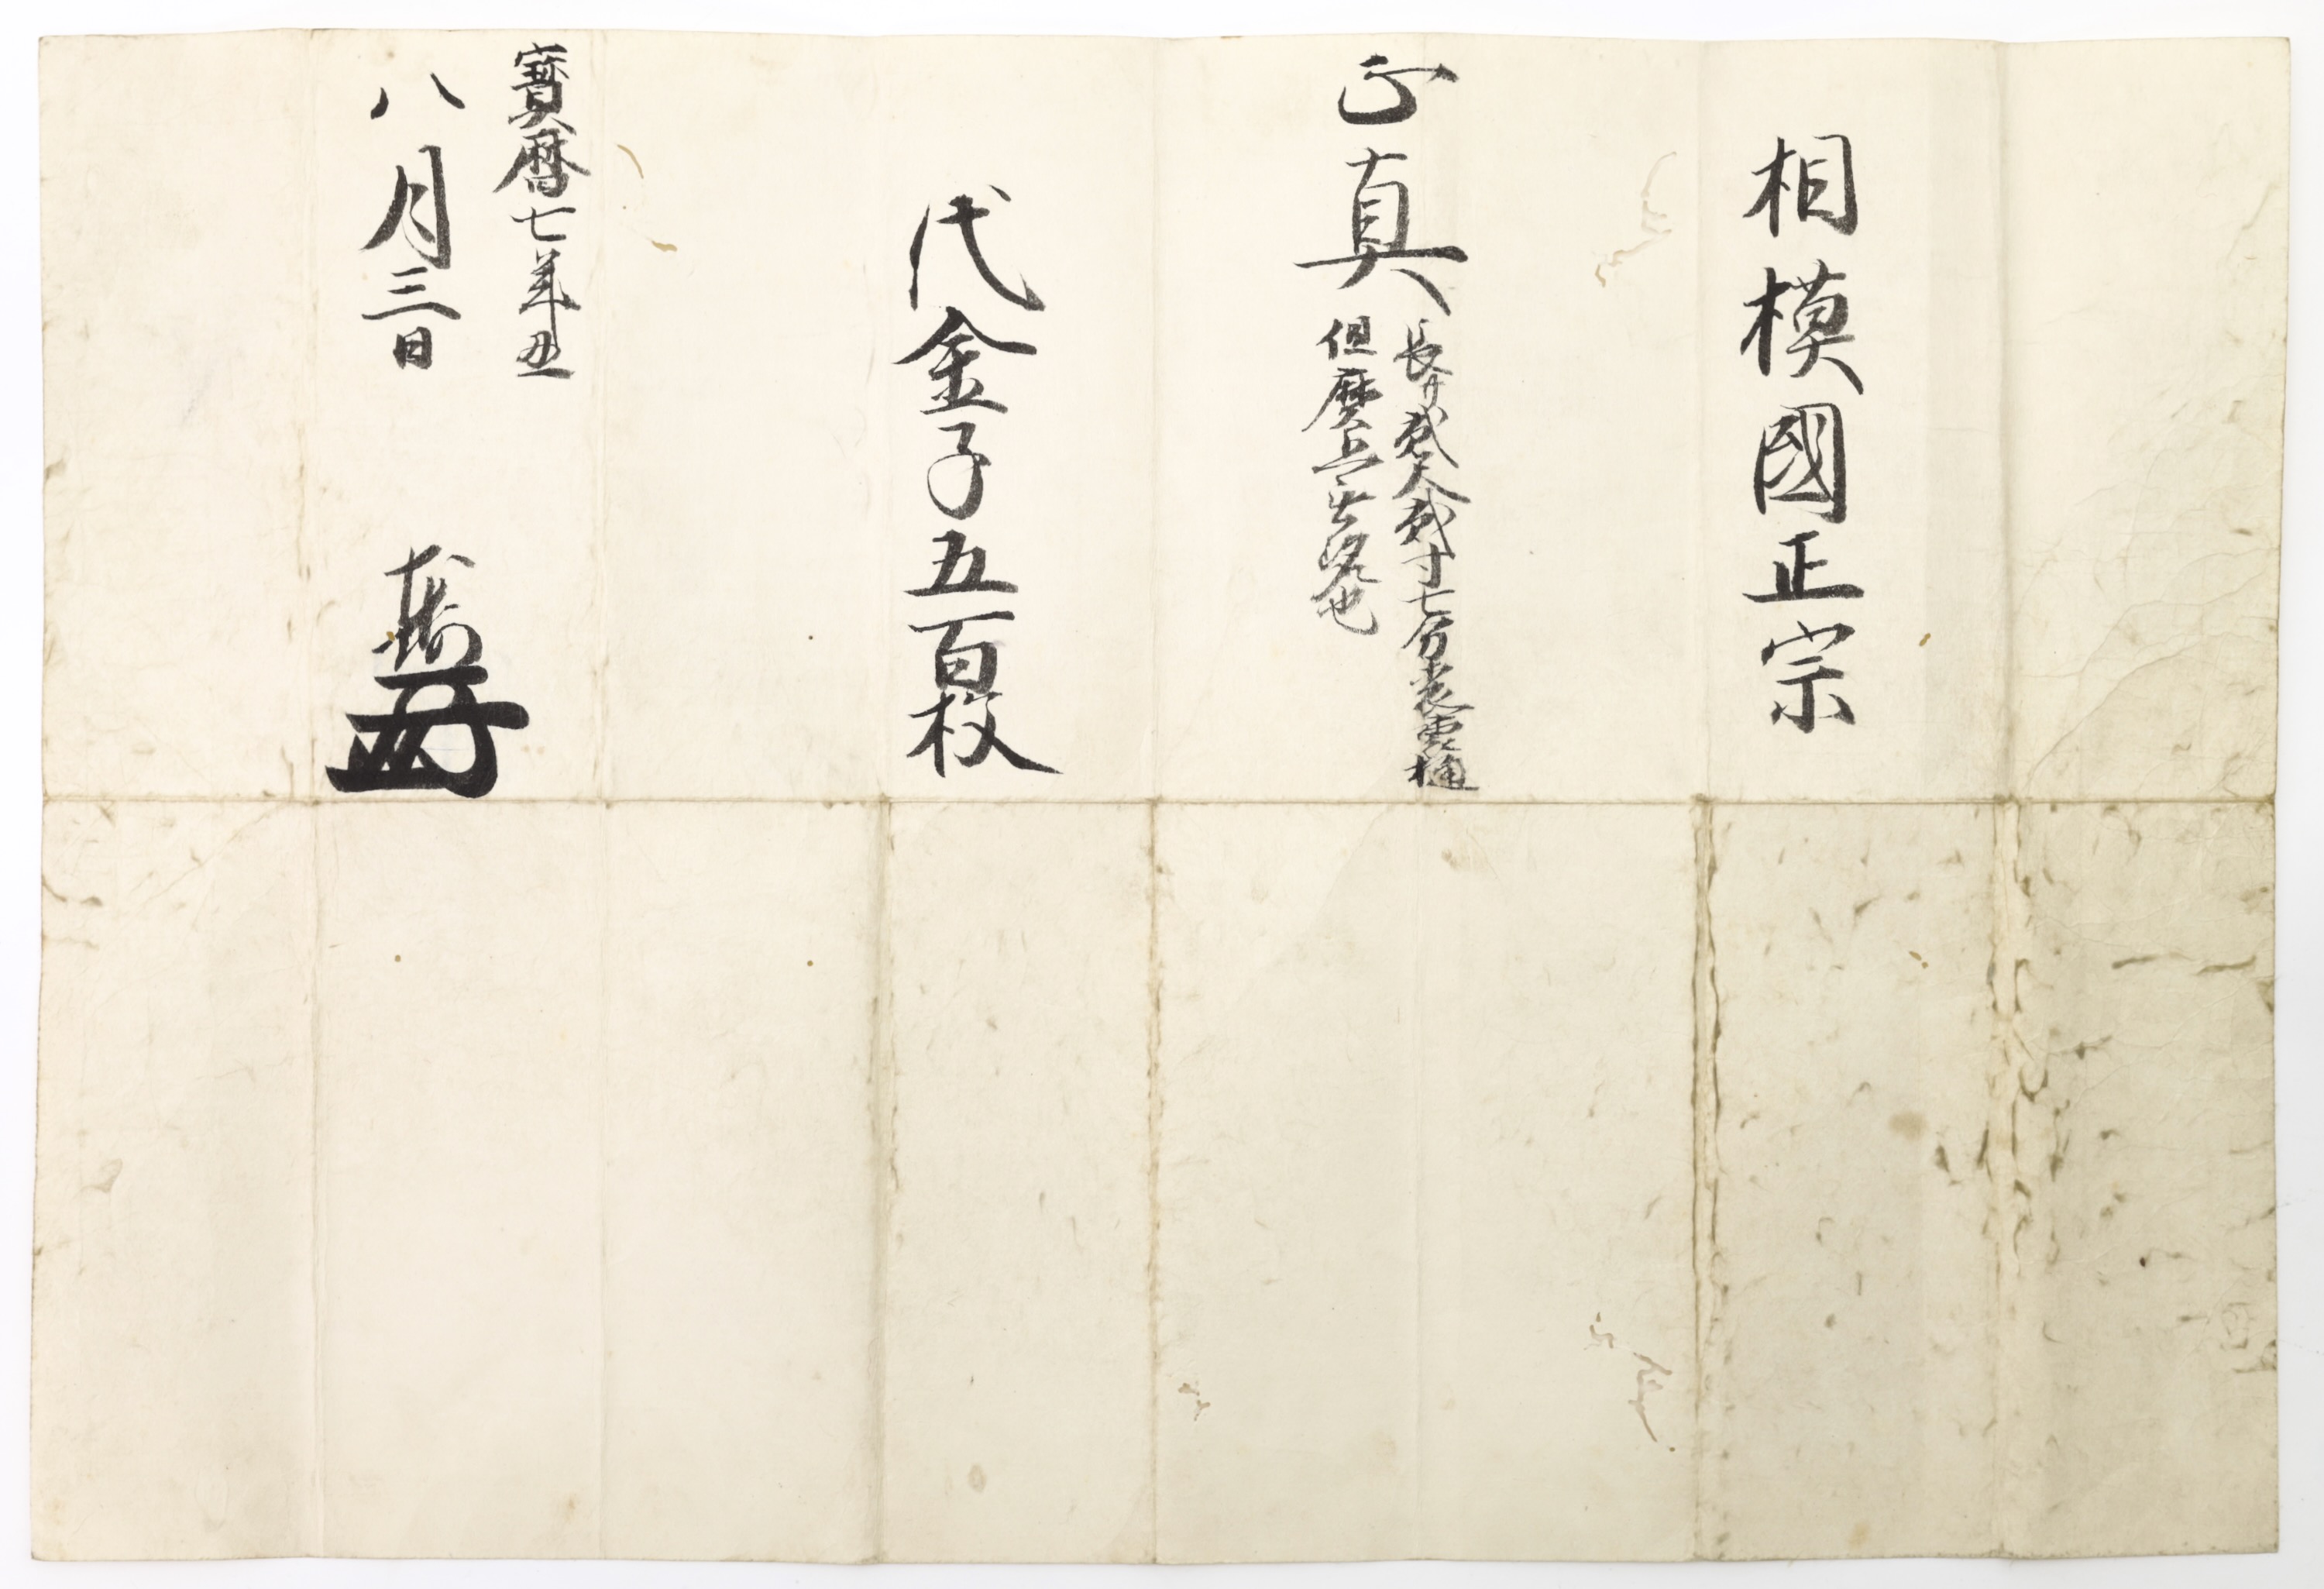 相模國正宗
正真
長サ貳尺貳寸七分表裏樋
但磨上無銘也
代金子五百枚
寳暦七年丑
八月三日